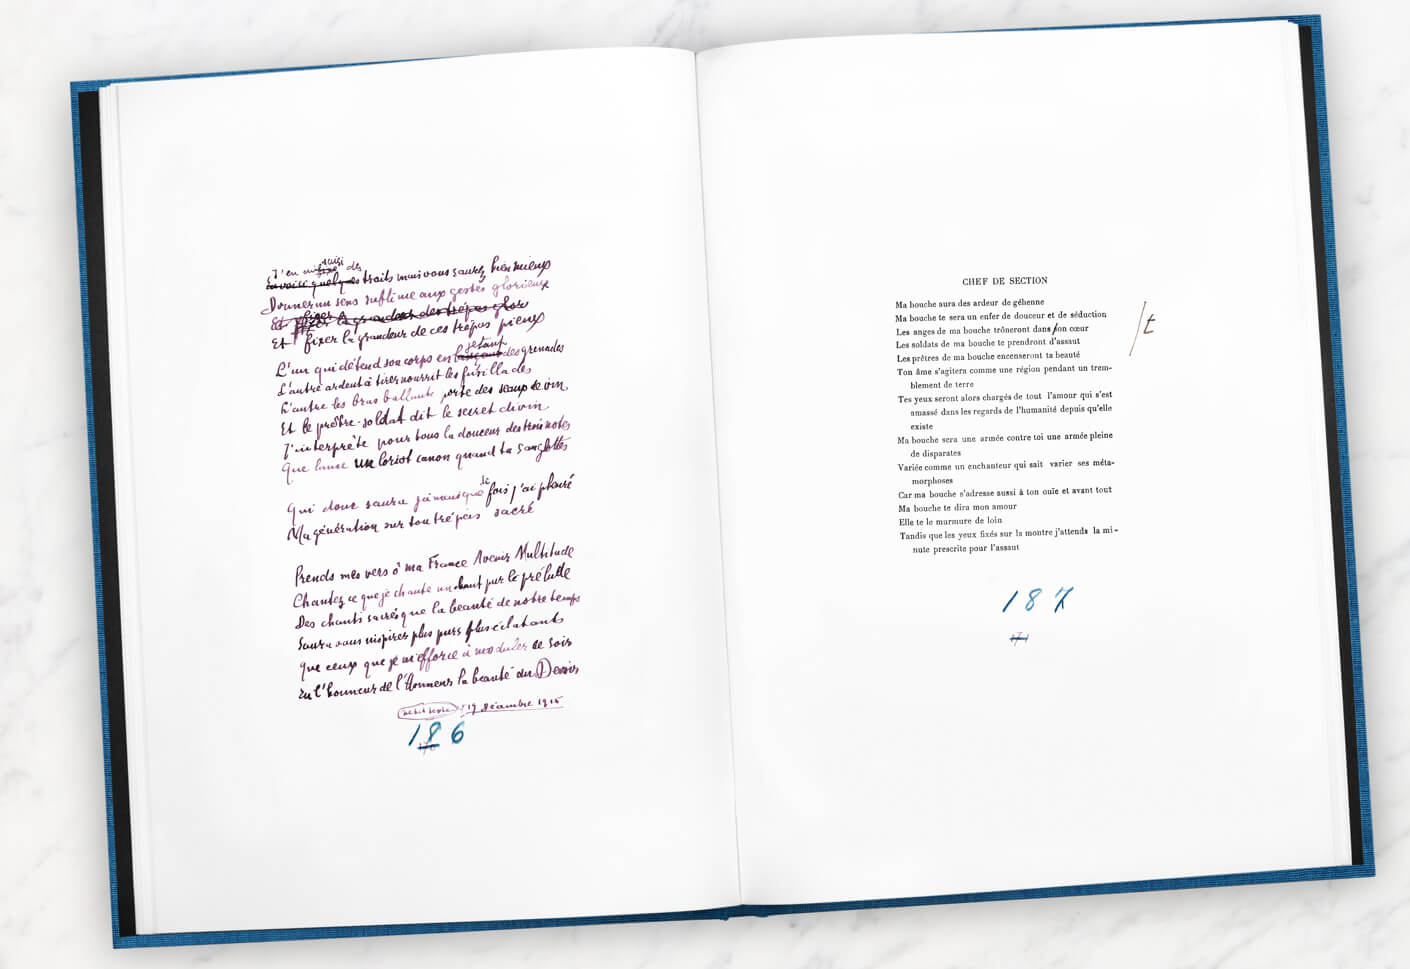 aussi
J'en ai fixé des
En voici quelques traits mais vous saurez bien mieux
Donner un sens sublime aux gestes glorieux
fixer
Et fixer la grandeur des trépas glor
Et fixer la grandeur de ces trépas pieux
L'un qui détend son corps en lançant des grenades
jetant
L'autre ardent à tirer nourrit les fusillades
L'autre les bras ballants porte des seaux de vin
Et le prêtre-soldat dit le secret divin
J'interprète pour tous la douceur des trois notes
Que lance un loriot canon quand tu sanglotes
Qui donc saura jamais que de fois j'ai pleuré
Ma génération sur ton trépas sacré
Prends mes vers ô ma France Avenir Multitude
Chantez ce que je chante un chant pur le prélude
Des chants sacrés que la beauté de notre temps
Saura vous inspirer plus purs plus éclatants
Que ceux que je m'efforce à moduler ce soir
En l'honneur de l'Honneur la beauté du Devoir
17 décembre 1915
186
CHEF DE SECTION
Ma bouche aura des ardeur de géhenne
Ma bouche te sera un enfer de douceur et de séduction
Les anges de ma bouche trôneront dans son cœur
/t
Les soldats de ma bouche te prendront d'assaut
Les prêtres de ma bouche encenseront ta beauté
Ton âme s'agitera comme une région pendant un trem-
blement de terre
Tes yeux seront alors chargés de tout l'amour qui s'est
amassé dans les regards de l'humanité depuis qu'elle
existe
Ma bouche sera une armée contre toi une armée pleine
de disparates
Variée comme un enchanteur qui sait varier ses méta-
morphoses
Car ma bouche s'adresse aussi à ton ouïe et avant tout
Ma bouche te dira mon amour
Elle te le murmure de loin
Tandis que les yeux fixés sur la montre j'attends la mi-
nute prescrite pour l'assaut
187
171